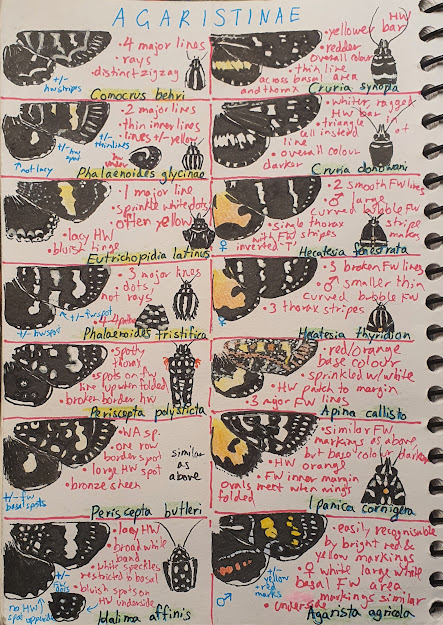 AGARISTINAE
• 4 major lines
• rays
• distinct zigzag
+/-
hw stripes
Comocrus behri
• yellower HW
bar
• redder
overall colour
• thin line
across basal area
and thorax
Cruria synopla
• 2 major lines
• thin inner lines
• lines +/- yellow
+/-
thin lines
+/- hw
spot
hw
under
not lacy
Phalaenoides glycinae
• whiter, ragged
HW bar
• triangle in
cell instead of
line
• overall colour
darker
Cruria donowani
• 1 major line
• sprinkle white dots
• often yellow
• lacy HW
• bluish hinge
Eutrichopidia latinus
• 2 smooth FW lines
• ♂ large
curved bubble FW
• single thorax stripe
with FW stripes makes
inverted 'T'
♀
Hecatesia fenestrata
• 3 major lines
• dots,
not rays
+/- fw spot
+/- hw spot
Phalaenoides tristifica
• 3 broken FW lines
• ♂ smaller thin
curved bubble FW
• 3 thorax stripes
♀
Hecatesia thyridion
• spotty
thorax
• spots on fw
line up when folded
• broken border hw
Periscepta polysticta
• red/orange
base colour
• sprinkled w/ white
• HW patch to margin
• 3 major FW lines
Apina callisto
• WA sp.
• one row
border spots
• long HW spot
• bronze sheen
similar
as
above
+/- fw
basal spots
Periscepta butleri
• Similar FW
markings as above,
but base colour darker
• HW
orange
• FW inner margin
ovals meet when wings
folded
Ipanica cornigera
• lacy HW
• broad white
band
• white speckles
restricted to basal
• bluish spots on
HW underside
+/-
dots
no HW
spot upperside
Idalima affinis
• easily recognisable
by bright red &
yellow markings
• ♀ white large white
basal FW area
• underside markings similar
+/-
yellow
+ red
marks
♂
Agarista agricola